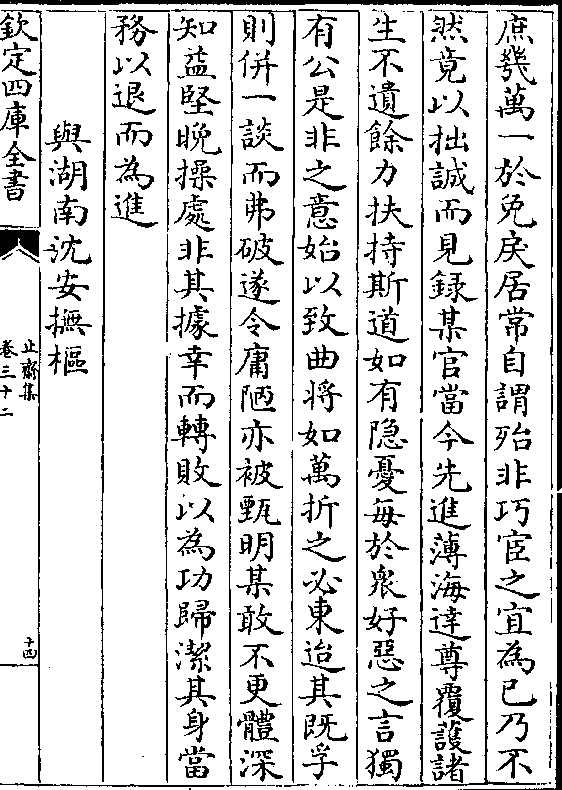 庶幾萬一於免戾居常自謂殆非巧宦之宜為已乃不
然竟以拙誠而見録某官當今先進薄海達尊覆護諸
生不遺餘力扶持斯道如有隐憂每於衆好惡之言獨
有公是非之意始以致曲将如萬折之必東迨其既孚
則併一談而弗破遂令庸陋亦被甄明某敢不更體深
知益堅晩操處非其據幸而轉敗以為功歸潔其身當
務以退而為進
與湖南沈安撫樞
欽定四庫全書
止齋集
卷三十二
十四